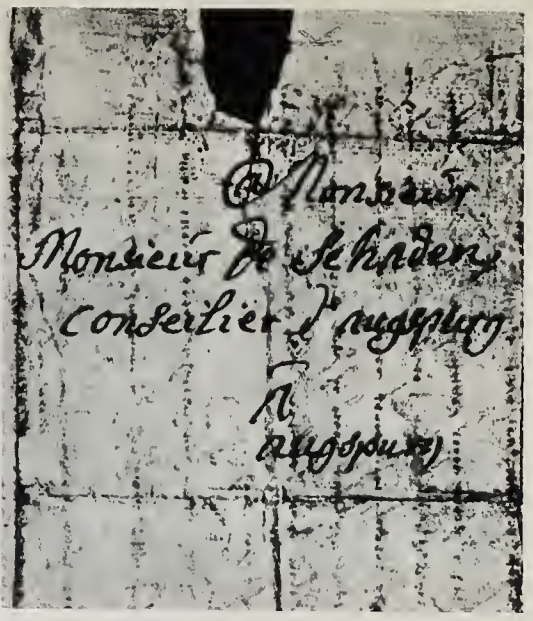 A Monsieur
Monsieur de Schaden
Conseilier d'augspurg
A
augspurg